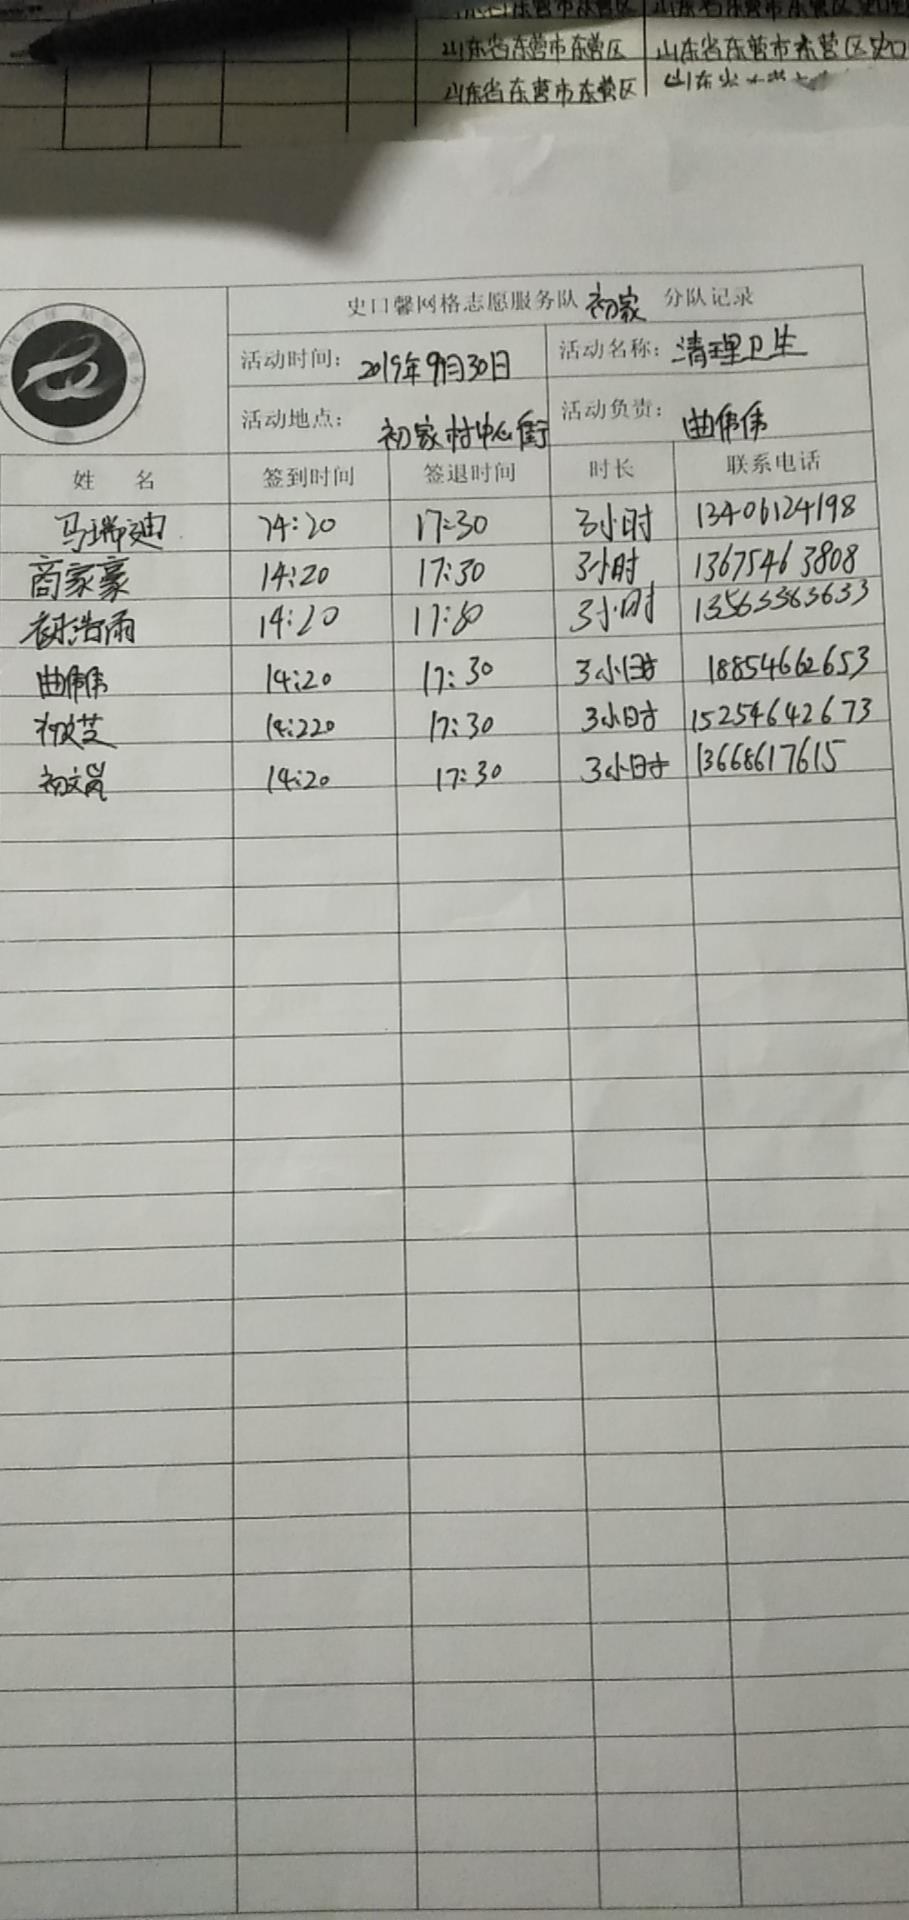 山东省东营市东营区 山东省东营市东营区史口
山东省东营市东营区 山东省
史口馨网格志愿服务队 初家 分队记录
活动时间: 2019年9月30日 活动名称: 清理卫生
活动地点: 初家村中心街 活动负责: 曲伟伟
姓 名 签到时间 签退时间 时长 联系电话
马瑞迪 14:20 17:30 3小时 13406124198
商家豪 14:20 17:30 3小时 13675463808
浩雨 14:20 17:30 3小时 13563363633
曲伟伟 14:20 17:30 3小时 18854662653
14:220 17:30 3小时 15254642673
初文岚 14:20 17:30 3小时 13668617615